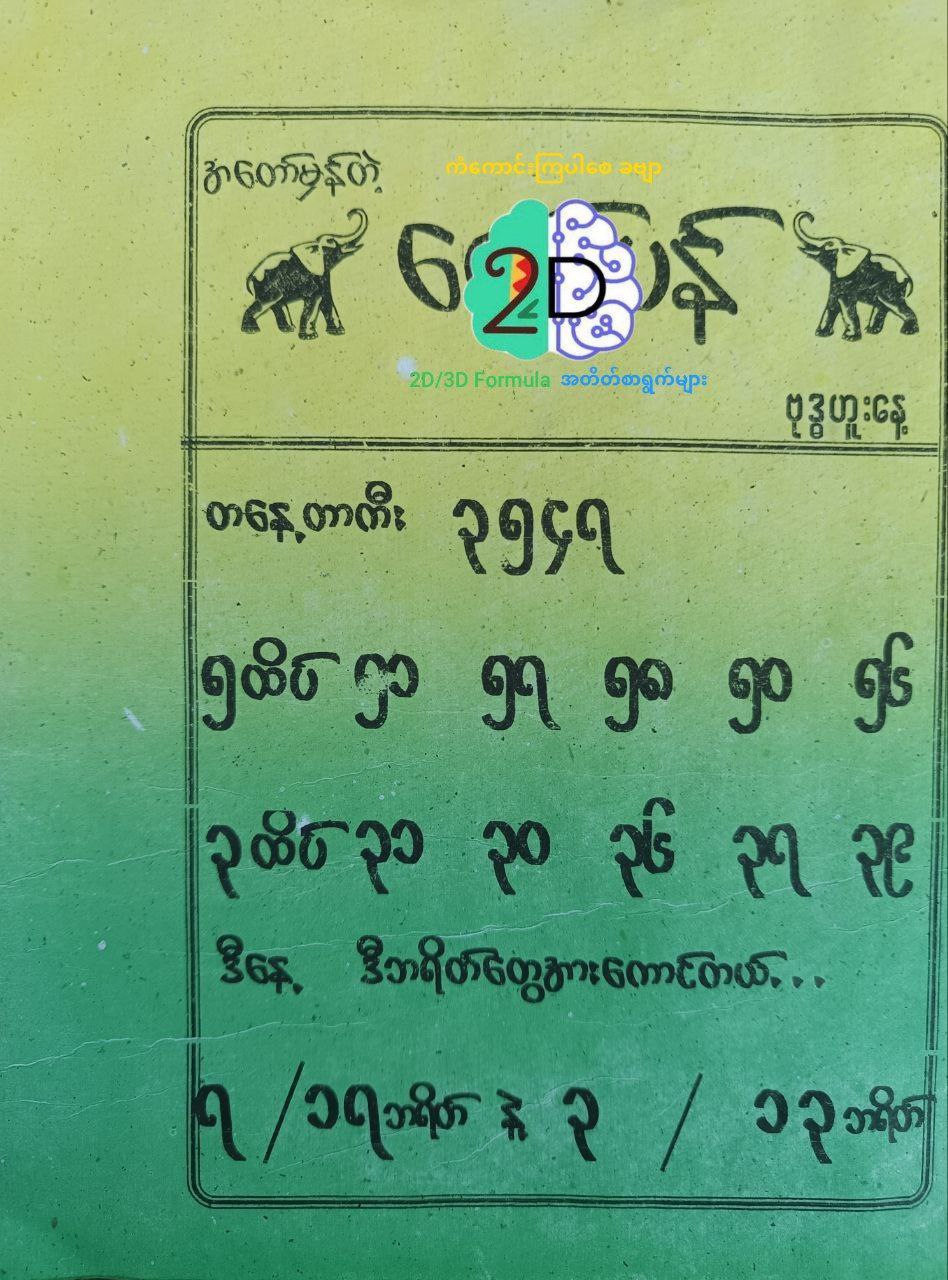 အတော်မှန်တဲ့
ကံကောင်းကြပါစေ ခဗျာ
2D
2D/3D Formula အတိတ်စာရွက်များ
ဗုဒ္ဓဟူးနေ့
တနေ့တာကီး ၃၅၄၇
၅ထိပ် ၅၁ ၅၇ ၅၈ ၅၀ ၅၆
၃ထိပ် ၃၁ ၃၀ ၃၆ ၃၇ ၃၉
ဒီနေ့ ဒီဘရိတ်တွေအားကောင်တယ်...
၇ / ၁၇ဘရိတ် နဲ့ ၃ / ၁၃ဘရိတ်